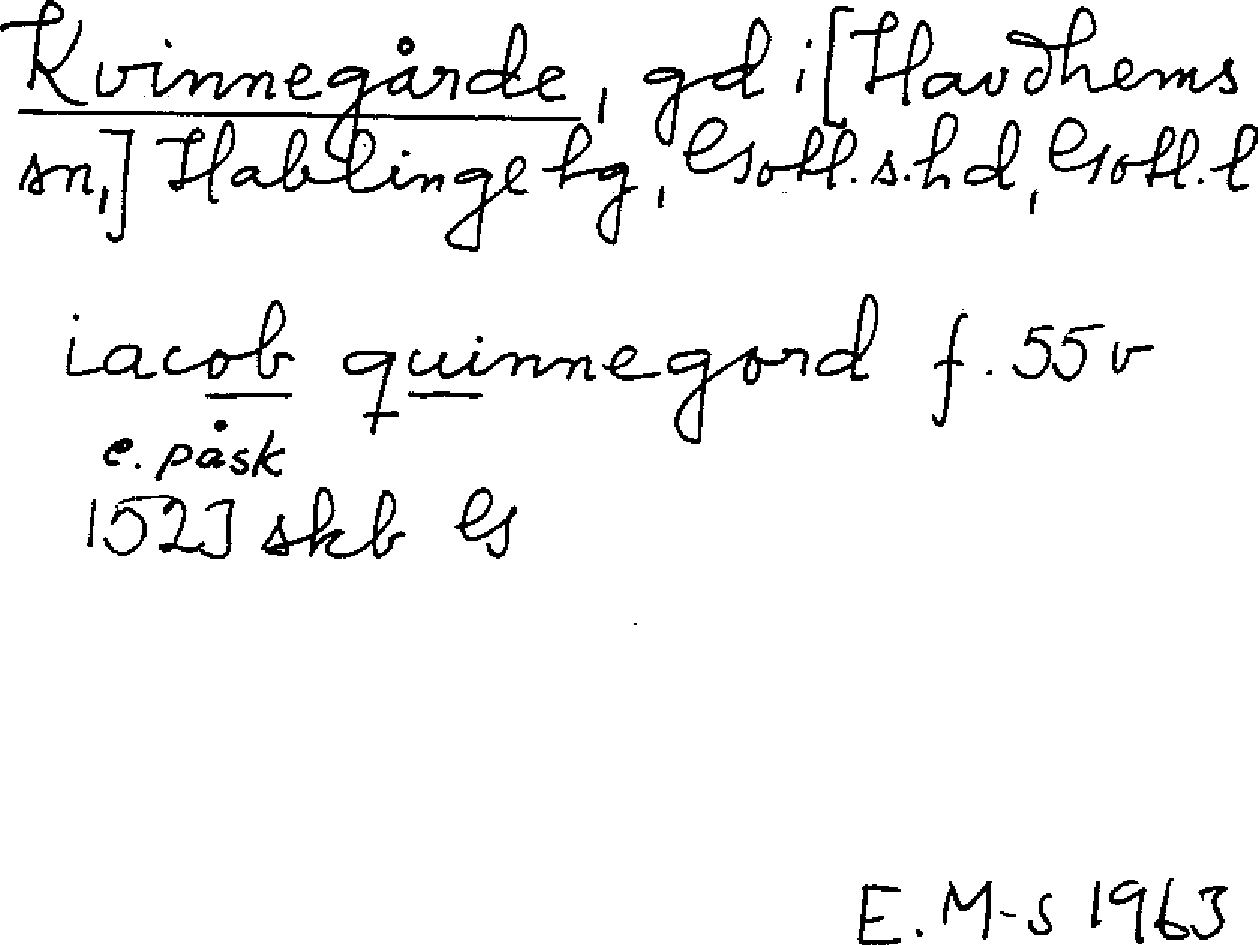 Kvinnegårde, gd i [Havdhems
sn,] Hablinge tg, Gotl. s. hd, Gotl. l
iacob quinnegord f. 55v
e. påsk
1523 skb G
E. M-s 1963